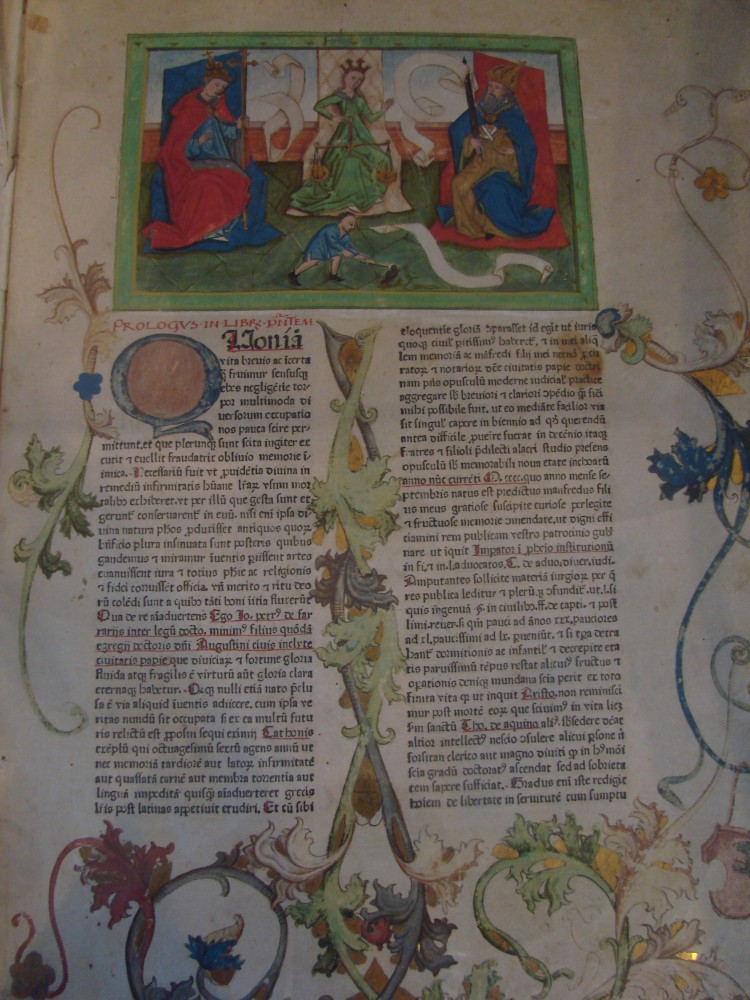 PROLOGVS·IN·LIBRŽ·PN̄TEM
vita brevio ac icerta
q̄ fruimur sensusq̨
negligētie tor-
por multimoda di
uersorum occupatio
nos pauca scire per-
mittunt. et que plerunq̨ sunt scita iugiter ex
cutit ⁊ euellit fraudatrix obliuio memorie i-
imica. Necessariū fuit vt ꝓuidētia diuina in
remediū infirmitatis hūane lr̄aꝝ vsum mor
talibꝰ exhiberet. vt per illū que gesta sunt et
gerunt̄ conseruarent̄ in euū. nisi eni ipsa di-
uina natura
bn̄ficio plura insinuata sunt posteris quibus
gaudemus ⁊ miramur iuentis ꝑissent artes
euanuissent iura ⁊ totius ac religionis
⁊ fidei corruisset officia. vn̄ merito ⁊ ritu deo
rū colēdi sunt a quibꝰ tāti boni
Qua de re aiaduertens Ego Io. petrꝰ de fer
rariis inter legū docto. minimꝰ filius quōdā
egregii doctoris dn̄i Augustini ciuis inclyte
ciuitatis papie que diuiciaꝝ ⁊ fortune gloria
fluida atq̨ fragilis ē virtutū aūt gloria clara
eternaq̨ habetur.
sa ē via aliquid iuentis adiicere. cum ipsa ve
ritas nundū sit occupata si ex ea multū futu
ris relictū est ꝓposui sequi eximii Cathonis
exēplū qui octuagesimū sextū agens annū ut
nec memoriā tardiorē aut latoꝝ infirmitatē
aut quassata carnē aut membra torrentia aut
lingua impeditā quisq̨ aiaduerteret grecis
lr̄is post latinas appetiuit erudiri. Et cū sibi
eloquentie gloriā ꝯparasset id egit ut iuris
quoq̨ ciuil' peritissimꝰ haberet̄. ⁊ in mei aliq̨
lem memoriā ac māfredi filij mei
ratoꝝ ⁊ notarioꝝ ciuitatis papie
nam pn̄s opusculū moderne iudicial' practice
aggregare sb̄ breuiori ⁊ clariori ꝯpēdio q̄ fieri
mihi possibile fuit. ut eo mediāte facilior via
sit singul' capere in biennio ad qd̄ querendū
antea difficile ꝓuenire fuerat in decēnio. itaq̨
fratres ⁊ filioli p̄dilecti alacri studio presens
opusculū sb̄ memorabili noua etate inchoatū
anno nūc currēti M.cccc. quo anno mense se-
ptembris natus est predictus manfredus fili
us meus gratiose suscipite curiose perlegite
⁊ fructuose memorie ꝯmendate. ut digni effi
ciamini rem publicam vestro patrocinio gub'
nare ut iquit Impator i institutionū
in fi. ⁊ in.l. aduocatos. C. de aduo. diuer. iudi.
Amputantes sollicite materiā iurgioꝝ per q̄
res publica leditur ⁊ ꝯfundit̄. ut.l. si
quis ingenuā ꝑ in ciuilibꝰ. ff. de capti. ⁊ post
limi. reuer. si qui pauci ad ānos xxx. pauciores
ad xl. paucissimi ad lx. ꝑueniūt. ⁊ si ex tpa detra
hant̄ dormitionis ac infantil' ⁊ decrepite eta
tis paruissimū tēpus restat alicuiꝰ fructus ⁊
oꝑationis deniq̨ mundana scia perit ex toto
finita vita q̄ ut inquit Aristo. non reminisci
mur post mortē eoꝝ que sciuimꝰ in vita licꝫ
ẜm sanctū Tho. de aquino
altior intellectꝰ nescio ꝯsulere alicui ꝑsone ñ
forsitan clerico aut magno diuiti ꝙ in hmōi
scia gradū doctoratꝰ ascendat sed ad sobrieta
tem sapere sufficiat. Gradus eni iste redigit
hoīem de libertate in seruitutē cum sumptu